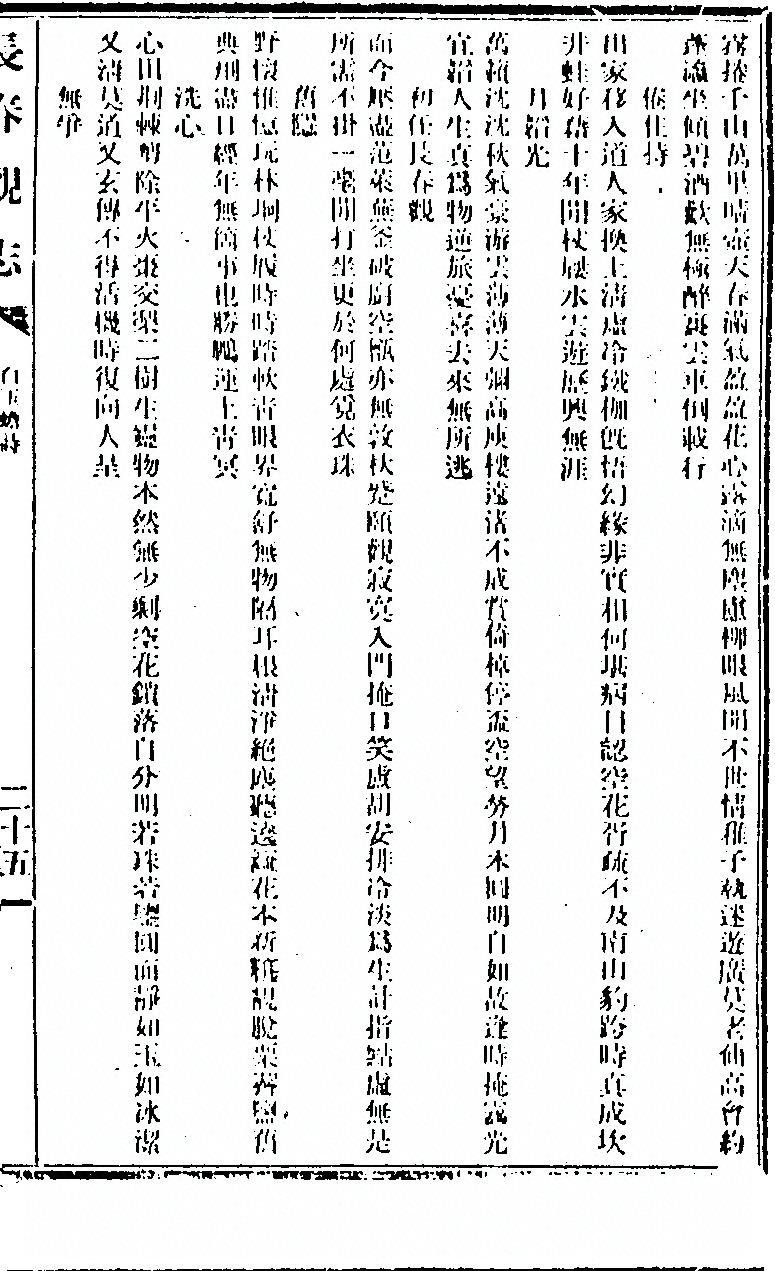 捲千山萬里晴壺天春滿氣盈盈花心露滴無塵慮柳眼風開不世情稚子執迷遊廣莫老仙高會約
蓬瀛坐傾碧酒歡無極醉裏雲車倒載行
倦住持
出家移入道人家換上清虛冷鐵枷旣悟幻緣非實相何堪病目認空花啇疏不及南山豹跨時真成坎
井蛙好藉十年閒杖屨水雲遊歷興無涯
月韜光
萬籟沈沈秋氣豪游雲薄薄天彌高庾樓遠渚不成賞倚棹停盃空望勞月本圓明自如故逢時掩靄光
宜韜人生真爲物逆旅憂喜去來無所逃
初住長春觀
而今壓盡范萊蕪釜破廚空甑亦無敦杖 頤觀寂寞入門掩口笑盧胡安排冷淡爲生計指點虛無是
所需不掛一毫閒打坐更於何處覓衣珠
舊隱
野懷惟憶玩林坰杖屨時時踏軟青眼界寬舒無物隔耳根清淨絕塵聽邊疏花木新雅靚脫粟虀鹽舊
典刑盡日經年無箇事也勝鵬運上青冥
洗心
心田荊棘剪除平火棗交梨二樹生靈物本然無少剩空花鎖落自分明若珠若鑒圓而靜如玉如冰潔
又清莫道又玄傳不得活機時復向人呈
無爭
長春觀志
二十五